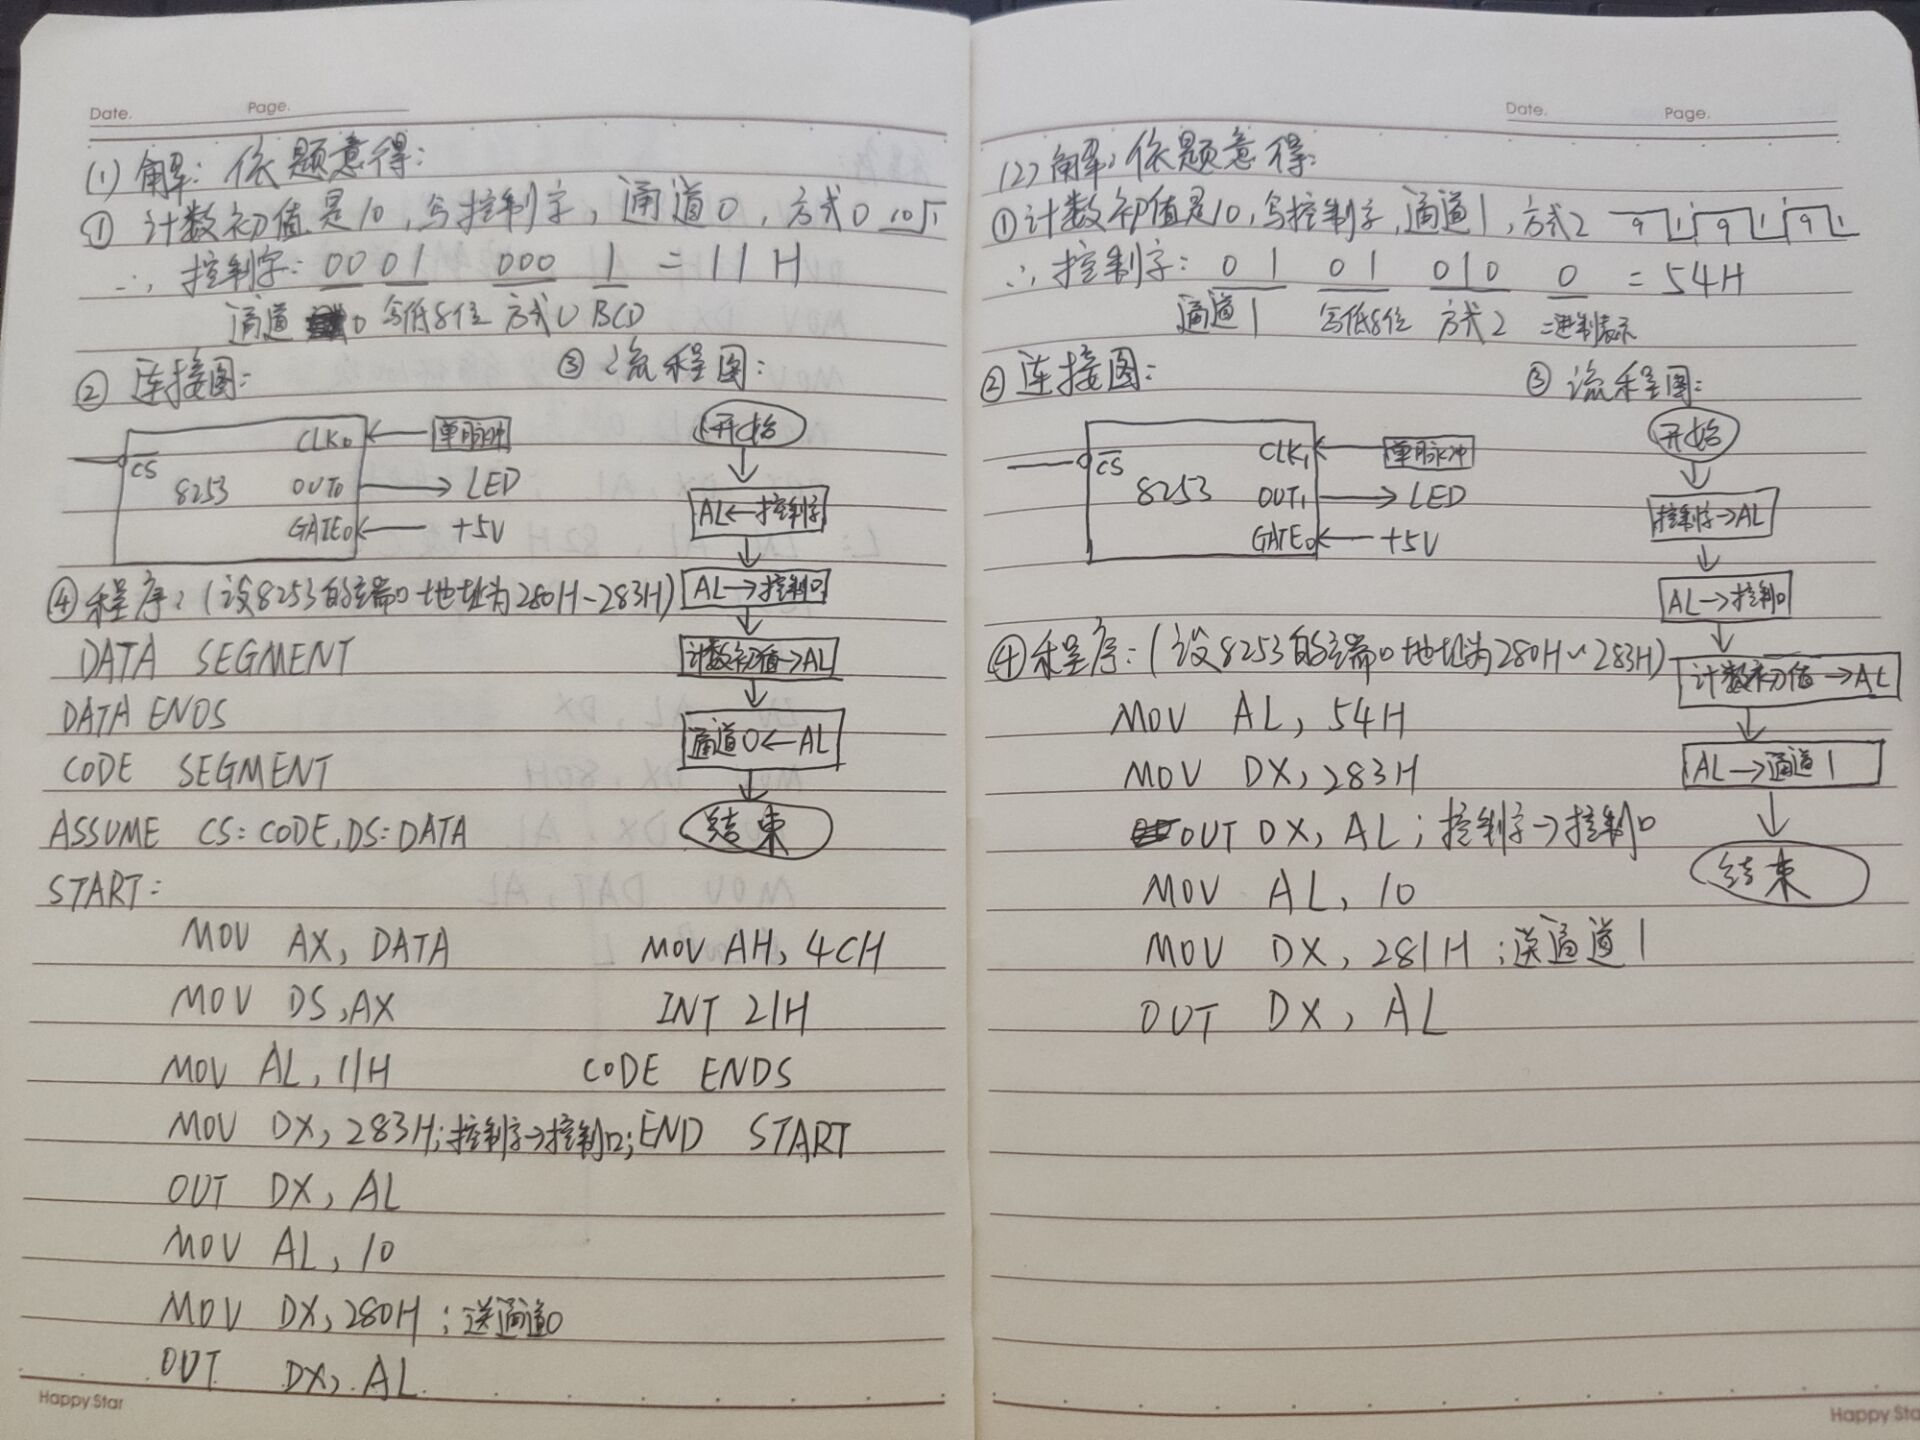 Date. Page.
(1) 解: 依题意得:
① 计数初值是10,写控制字,通道0,方式0
∴ 控制字: 00 01 000 1 = 11H
通道0 写低8位 方式0 BCD
② 连接图:
CLK0 单脉冲
CS 8253 OUT0 LED
GATE0 +5V
③ 流程图:
开始
AL←控制字
AL→控制口
计数初值→AL
通道0←AL
结束
④ 程序: (设8253的端口地址为280H~283H)
DATA SEGMENT
DATA ENDS
CODE SEGMENT
ASSUME CS:CODE,DS:DATA
START:
MOV AX, DATA
MOV DS,AX
MOV AL, 11H
MOV DX, 283H;控制字→控制口;
OUT DX, AL
MOV AL, 10
MOV DX, 280H ;送通道0
OUT DX, AL
MOV AH, 4CH
INT 21H
CODE ENDS
END START
Happy Star
Date. Page.
(2) 解: 依题意得:
①计数初值是10,写控制字,通道1,方式2 9 1 9 1 9 1
∴ 控制字: 01 01 010 0 = 54H
通道1 写低8位 方式2 二进制表示
② 连接图:
CLK1 单脉冲
CS 8253 OUT1 LED
GATE0 +5V
③ 流程图:
开始
控制字→AL
AL→控制口
计数初值→AL
AL→通道1
结束
④ 程序: (设8253的端口地址为280H~283H)
MOV AL, 54H
MOV DX, 283H
OUT DX, AL ;控制字→控制口
MOV AL, 10
MOV DX, 281H ;送通道1
OUT DX, AL
Happy Sta